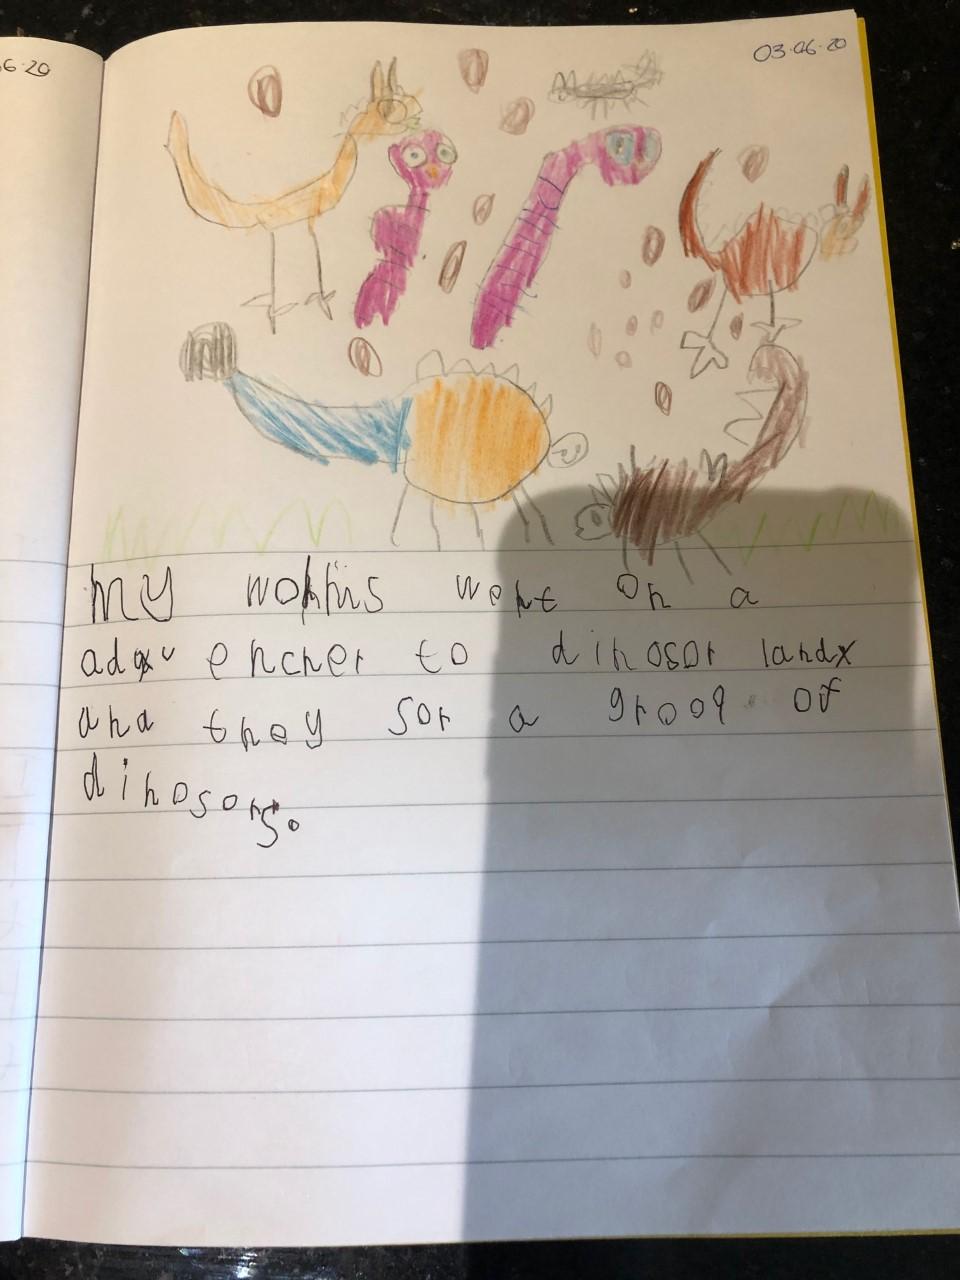 6.20
03.06.20
My worms went on a
adv encher to dinosor land
and they sor a groop of
dinosors.